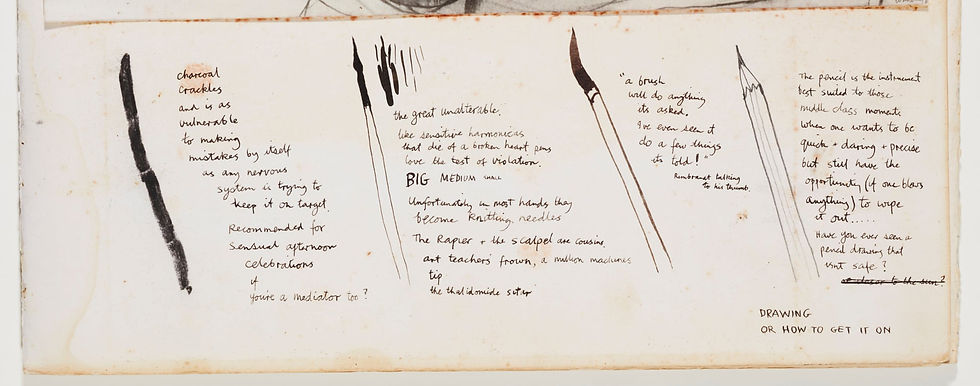 charcoal
crackles
and is as
vulnerable
to making
mistakes by itself
as any nervous
system is trying to
keep it on target.
Recommended for
sensual afternoon
celebrations
if
you're a mediator too?
the great unalterable.
like sensitive harmonicas
that die of a broken heart pens
love the test of violation.
BIG MEDIUM SMALL
Unfortunately in most hands they
become knitting needles
The Rapier + the scalpel are cousins,
art teachers' frown, a million machines
tip
the thalidomide sitar
"a brush
will do anything
its asked.
I've even seen it
do a few things
its told!"
Rembrandt talking
to his thumb.
The pencil is the instrument
best suited to those
middle class moments
when one wants to be
quick + daring + precise
but still have the
opportunity (if one blows
anything) to wipe
it out.....
Have you ever seen a
pencil drawing that
isnt safe?
closer to the sun?
DRAWING
OR HOW TO GET IT ON